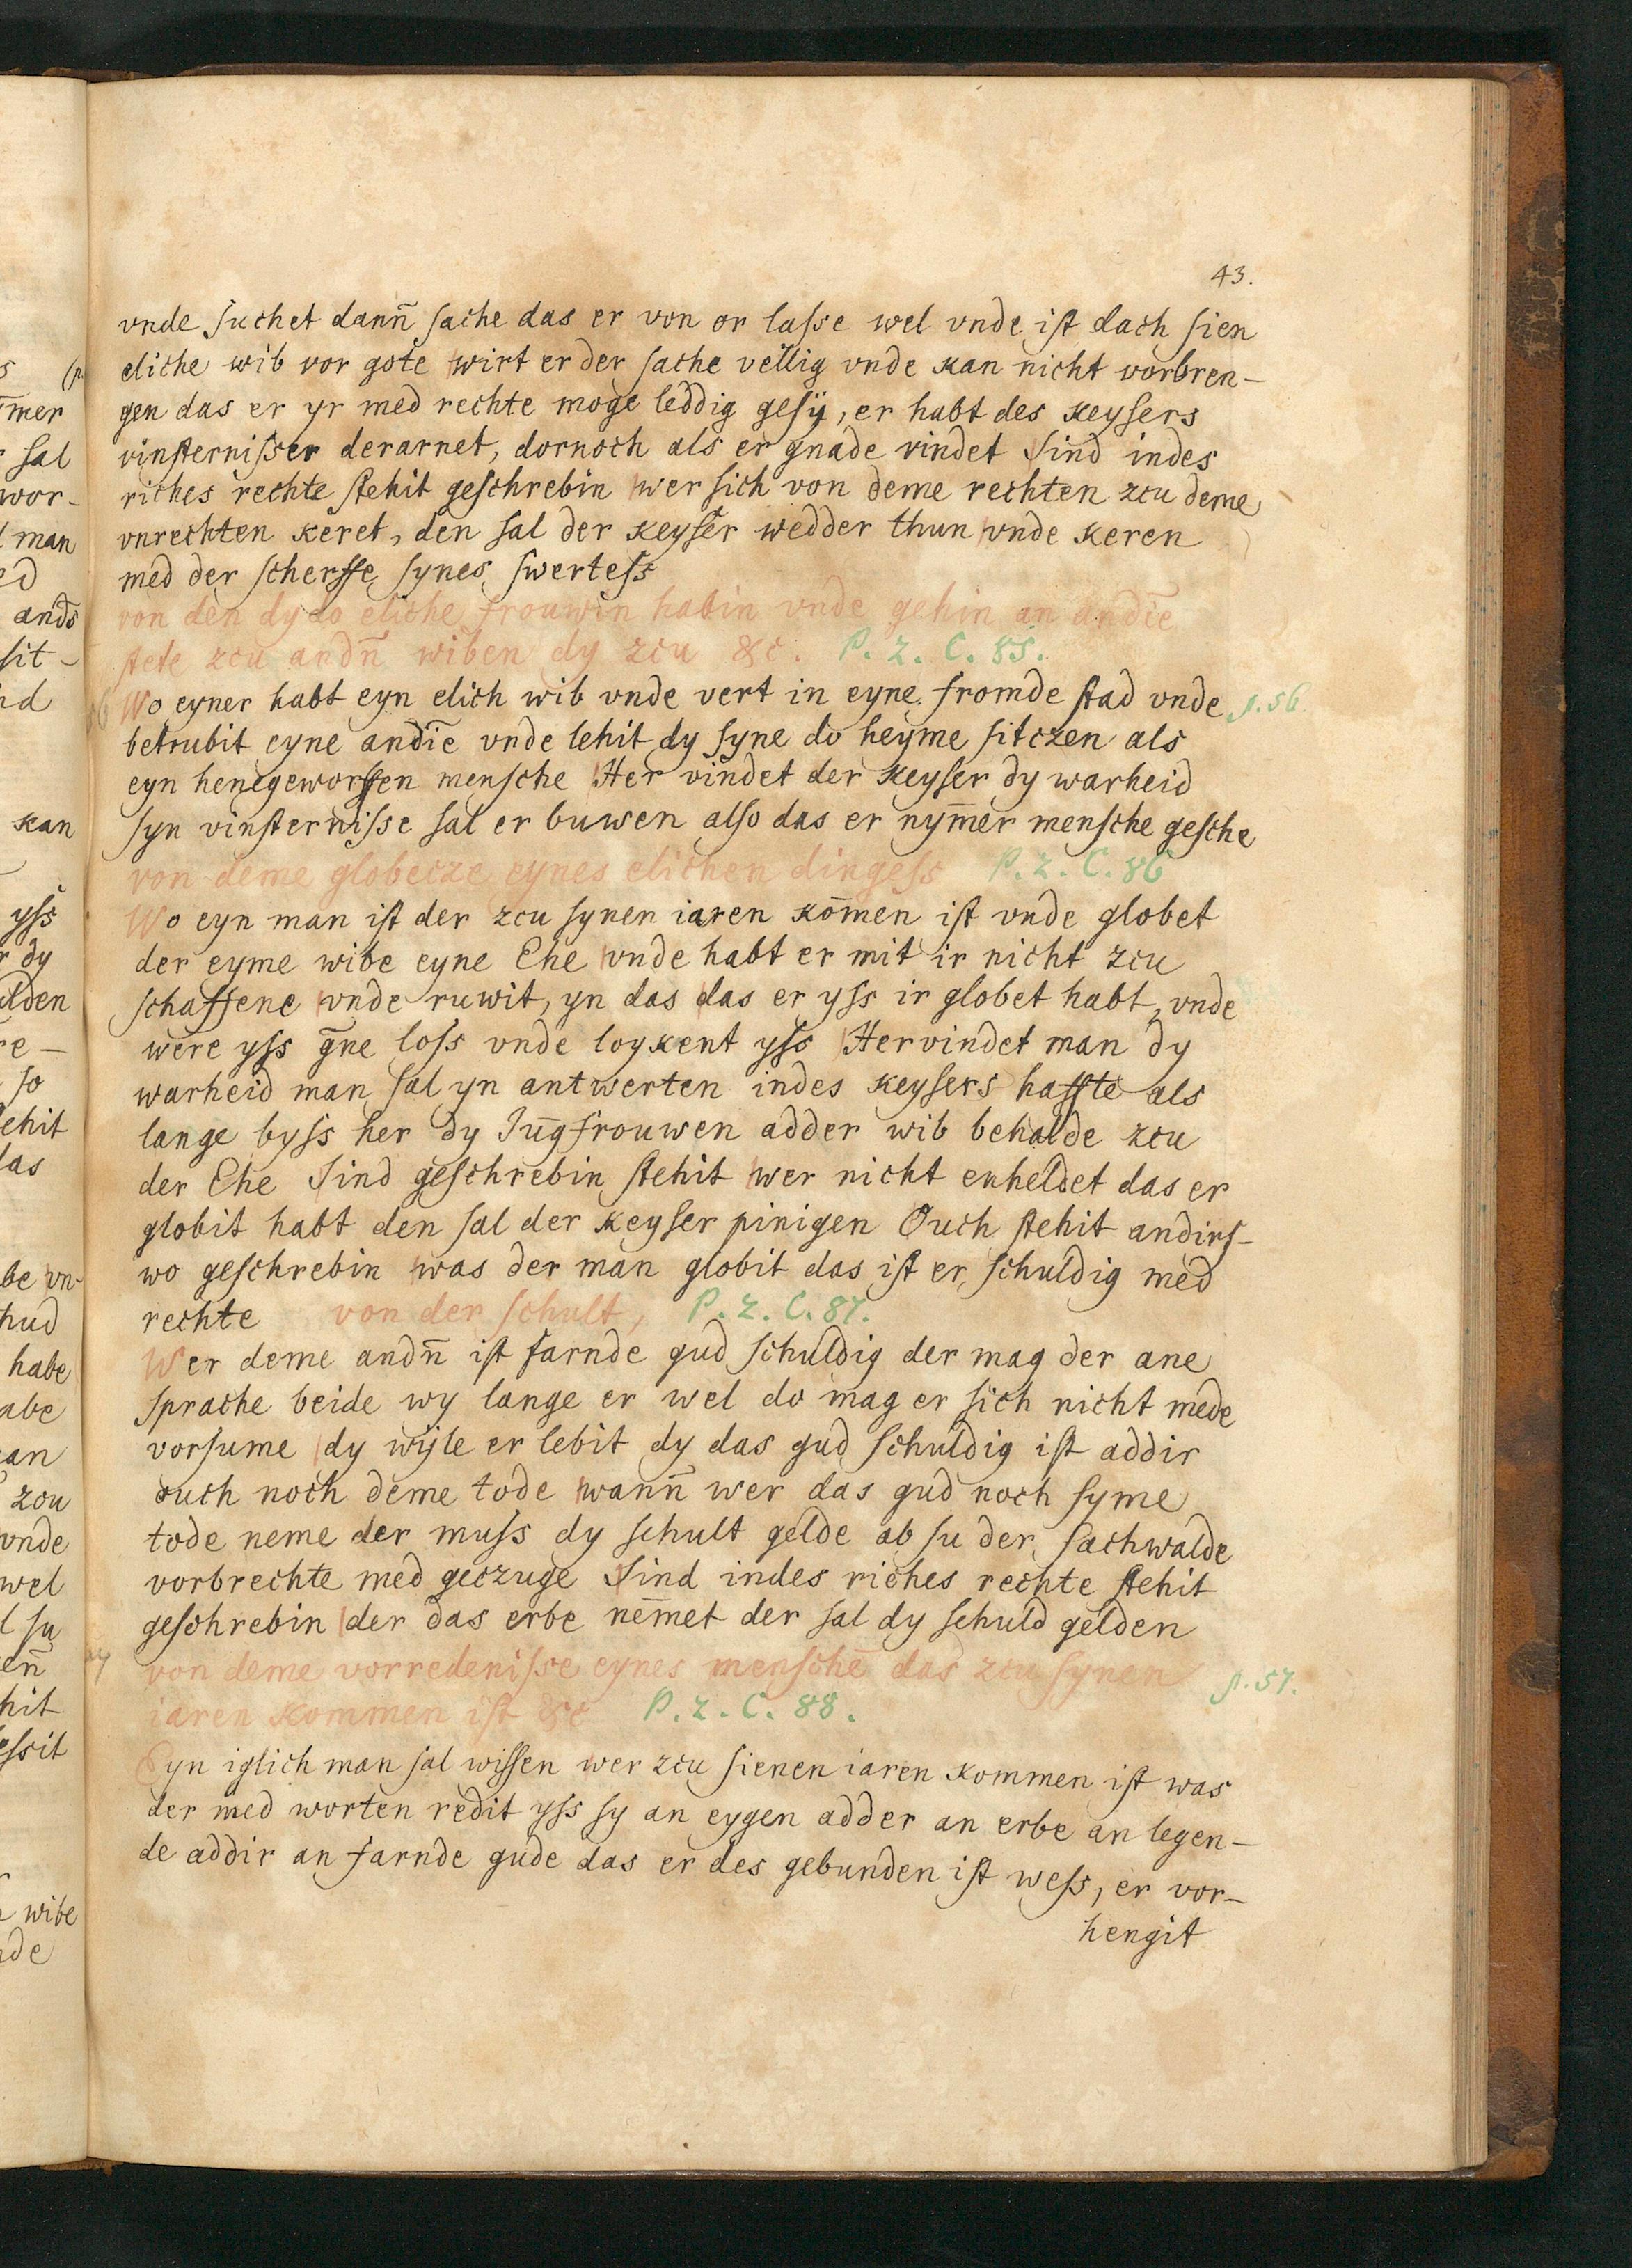 43.
vnde suchet dan̄n sache das er von or lasse wel vnde ist dach sien
eliche wib vor gote wirt er der sache vellig vnde kan nicht vorbren-
gen das er yr med rechte moge leddig gesÿ, er habt des keysers
vinsternisser derarnet, dornoch als er gnade vindet Sind indes
riches rechte stehit geschrebin wer sich von deme rechten zcu deme
vnrechten keret, den sal der keyser wedder thun vnde keren
med der scherffe synes swertess
von den dy do eliche frouwin habin vnde gehin an andīe
stete zcu andn̄ wiben dy zcu &c. P. 2. C. 85.
Wo eyner habt eyn elich wib vnde vert in eyne fromde stad vnde p. 56.
betrubit eyne andīe vnde lehit dy syne do heyme sitczen als
eyn henegeworffen mensche Her vindet der Keyser dy warheid
syn vinsternisse sal er buwen also das er nym̄er mensche gesche
von deme globecze eynes elichen dingess P. 2. C. 86
Wo eyn man ist der zcu synen iaren kom̄en ist vnde globet
der eyme wibe eyne Ehe vnde habt er mit ir nicht zcu
schaffene vnde ruwit, yn das das er yss ir globet habt, vnde
were yss ḡne loss vnde loykent yss Hervindet man dy
warheid man sal yn antwerten indes keysers haffte als
lange byss her dy Jūgfrouwen adder wib behalde zcu
der Ehe Sind geschrebin stehit wer nicht enheldet das er
globit habt den sal der keyser pinigen Ouch stehit andirs-
wo geschrebin was der man globit das ist er schuldig med
rechte von der schult, P. 2. C. 87.
Wer deme andn̄ ist farnde gud schuldig der mag der ane
sprache beide wy lange er wel do mag er sich nicht mede
vorsume dy wyle er lebit dy das gud schuldig ist addir
ouch noch deme tode wan̄n wer das gud noch syme
tode neme der muss dy schult gelde ab su der sachwalde
vorbrechte med geczuge Sind indes riches rechte stehit
geschrebin der das erbe nem̄et der sal dy schuld gelden
von deme vorredenisse eynes menschē das zcu synen p. 57.
iaren kommen ist &c P. 2. C. 88.
Eyn iglich man sal wissen wer zcu sienen iaren kommen ist was
der med worten redit yss sy an eygen adder an erbe an legen-
de addir an farnde gude das er des gebunden ist wess, er vor-
hengit